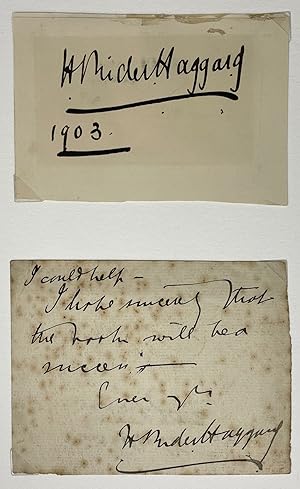 H Rider Haggard
1903.
I could help –
I hope sincerely that
the book will be a
success
Ever yrs
H Rider Haggard